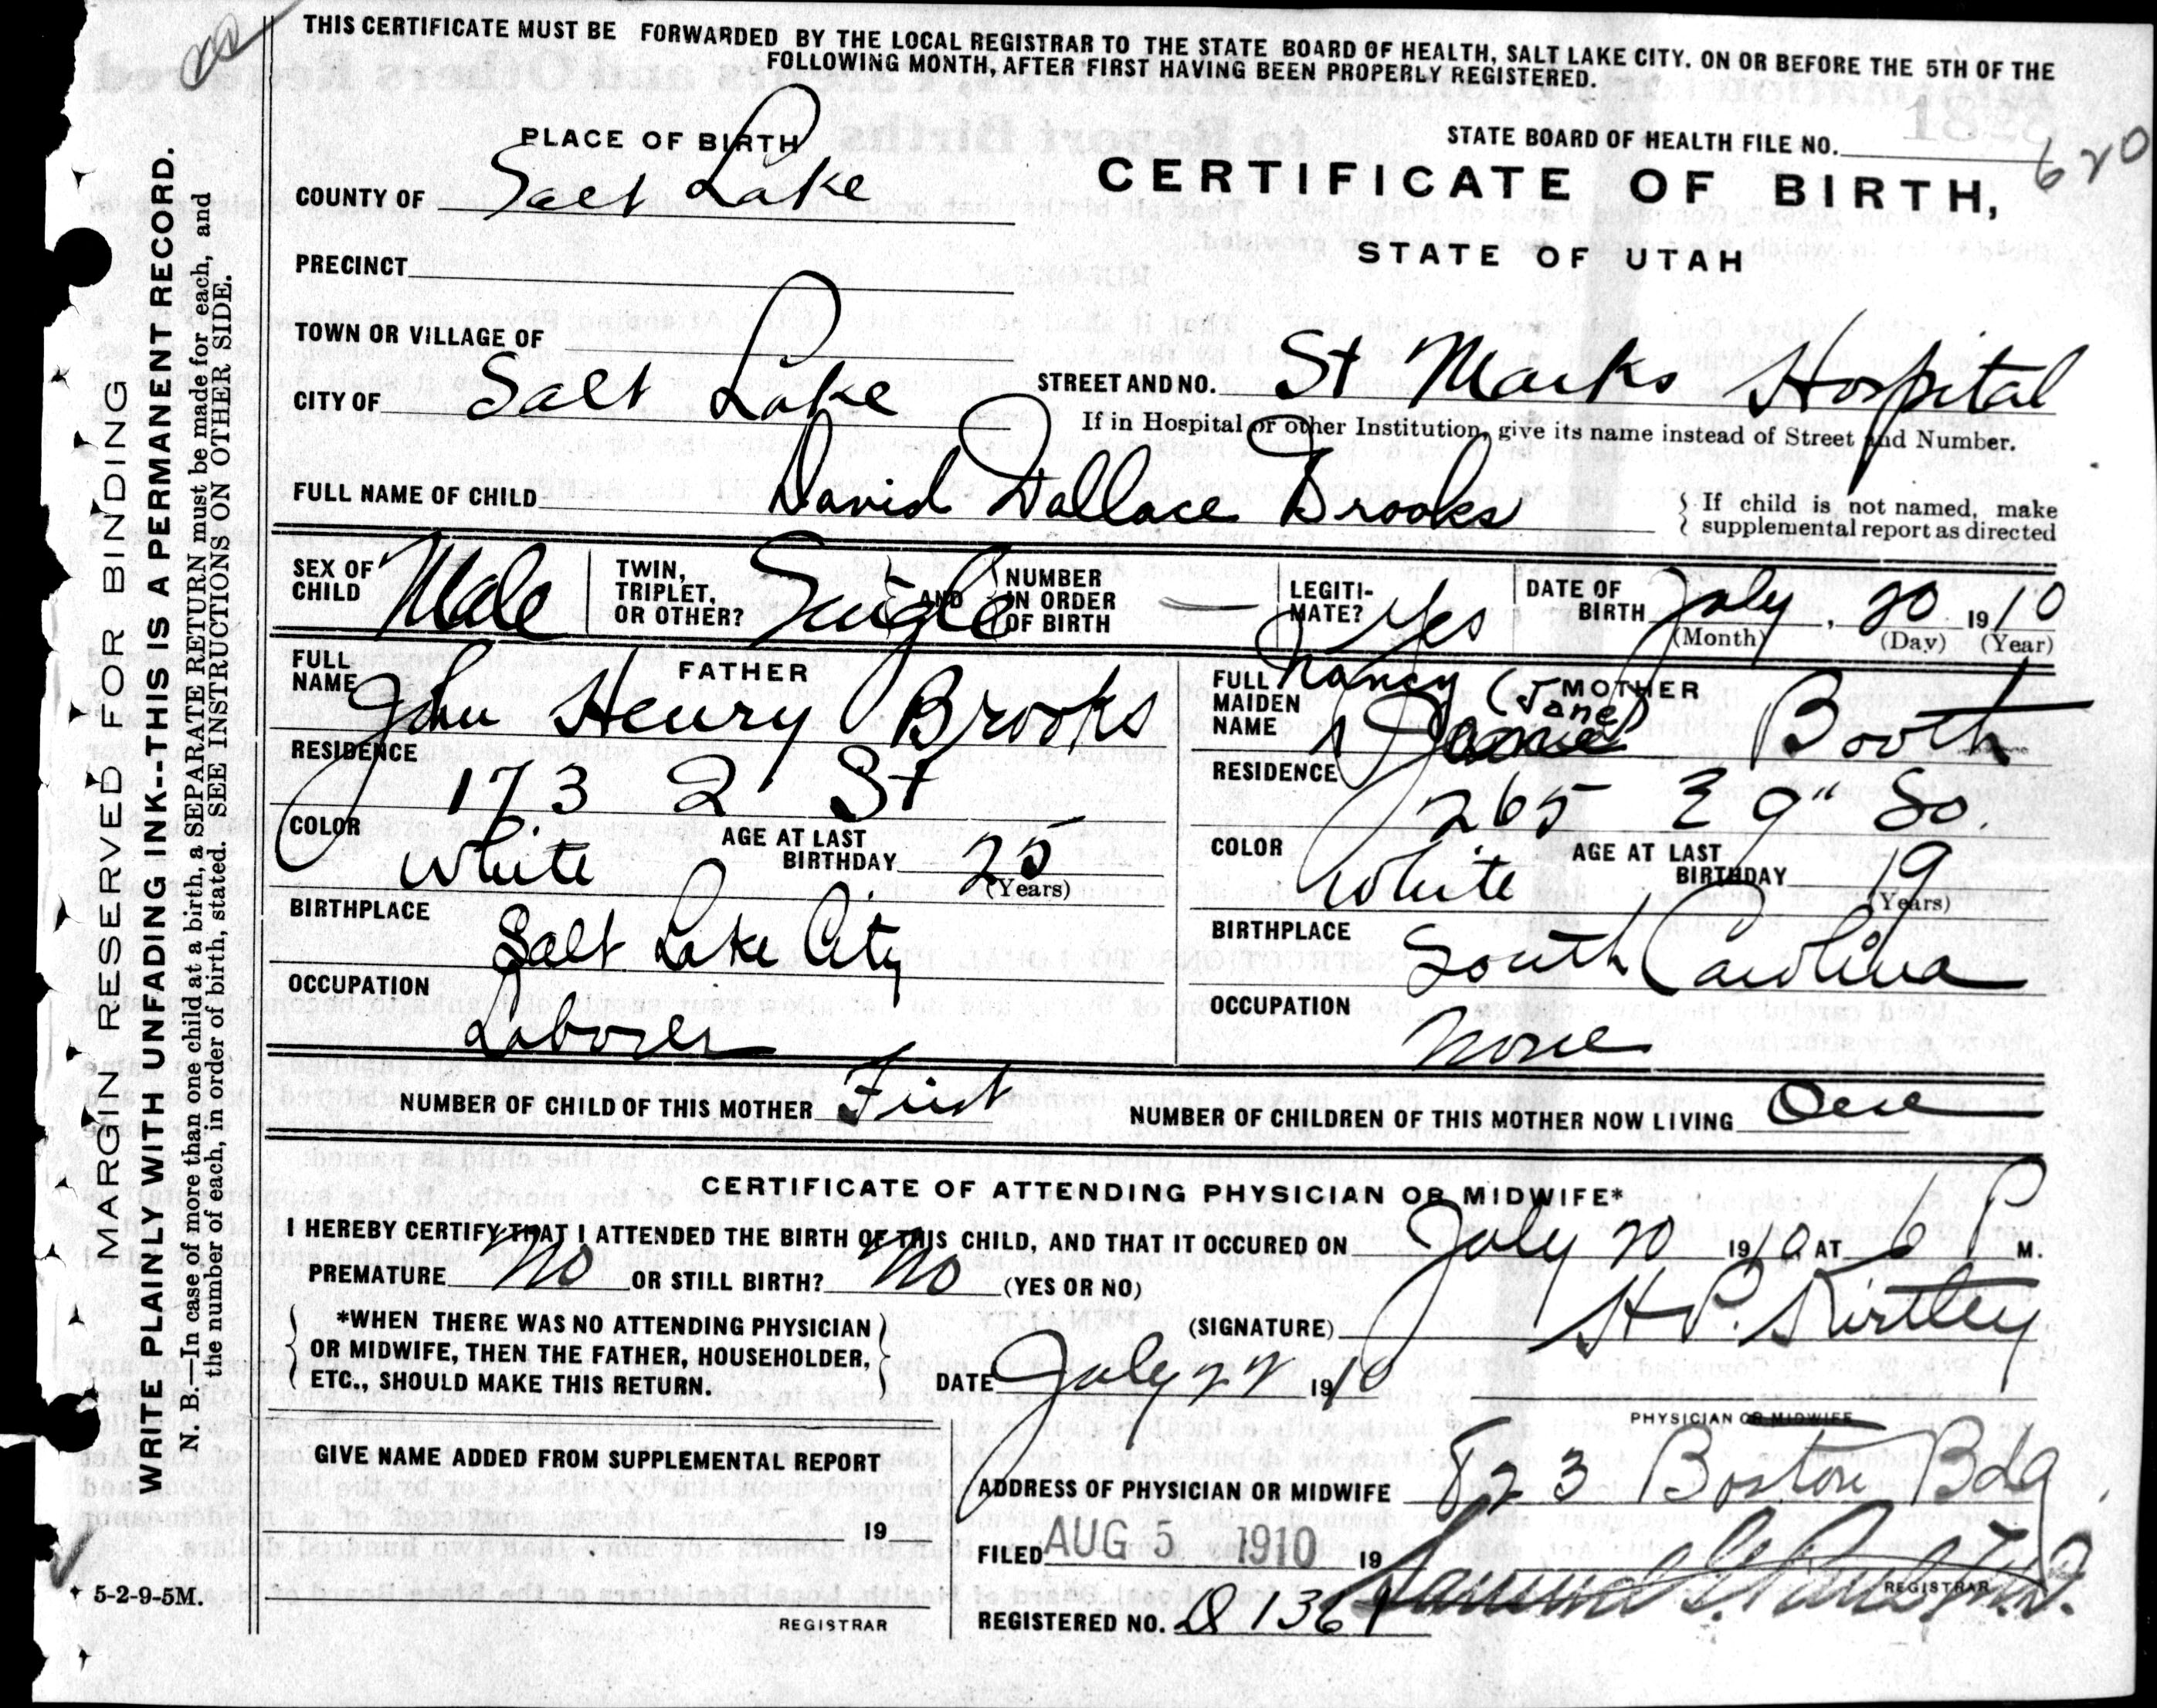 THIS CERTIFICATE MUST BE FORWARDED BY THE LOCAL REGISTRAR TO THE STATE BOARD OF HEALTH, SALT LAKE CITY. ON OR BEFORE THE 5TH OF THE
FOLLOWING MONTH, AFTER FIRST HAVING BEEN PROPERLY REGISTERED.
PLACE OF BIRTH
STATE BOARD OF HEALTH FILE NO.
620
COUNTY OF Salt Lake
CERTIFICATE OF BIRTH,
STATE OF UTAH
PRECINCT
TOWN OR VILLAGE OF
CITY OF Salt Lake
STREET AND NO. St Marks Hospital
If in Hospital or other Institution, give its name instead of Street and Number.
FULL NAME OF CHILD David Wallace Brooks
{ If child is not named, make
{ supplemental report as directed
SEX OF CHILD Male
TWIN, TRIPLET, OR OTHER? Single
AND { NUMBER IN ORDER OF BIRTH —
LEGITI-MATE? Yes
DATE OF BIRTH July, 20 1910
(Month) (Day) (Year)
FATHER
FULL NAME John Henry Brooks
RESIDENCE 173 2 St
COLOR White
AGE AT LAST BIRTHDAY 25
(Years)
BIRTHPLACE Salt Lake City
OCCUPATION Laborer
MOTHER
FULL MAIDEN NAME Nancy (Jane) Booth
RESIDENCE 265 E 9" So.
COLOR White
AGE AT LAST BIRTHDAY 19
(Years)
BIRTHPLACE South Carolina
OCCUPATION None
NUMBER OF CHILD OF THIS MOTHER First
NUMBER OF CHILDREN OF THIS MOTHER NOW LIVING One
CERTIFICATE OF ATTENDING PHYSICIAN OR MIDWIFE*
I HEREBY CERTIFY THAT I ATTENDED THE BIRTH OF THIS CHILD, AND THAT IT OCCURED ON July 20 1910, AT 6 P M.
PREMATURE No OR STILL BIRTH? No (YES OR NO)
*WHEN THERE WAS NO ATTENDING PHYSICIAN
OR MIDWIFE, THEN THE FATHER, HOUSEHOLDER,
ETC., SHOULD MAKE THIS RETURN.
(SIGNATURE) H P. Kirtley
DATE July 22 1910
PHYSICIAN OR MIDWIFE
GIVE NAME ADDED FROM SUPPLEMENTAL REPORT
19
REGISTRAR
ADDRESS OF PHYSICIAN OR MIDWIFE 823 Boston Bdg.
FILED AUG 5 1910 19
REGISTRAR
REGISTERED NO. D 1361
MARGIN RESERVED FOR BINDING
WRITE PLAINLY WITH UNFADING INK--THIS IS A PERMANENT RECORD.
N. B.—In case of more than one child at a birth, a SEPARATE RETURN must be made for each, and
the number of each, in order of birth, stated. SEE INSTRUCTIONS ON OTHER SIDE.
5-2-9-5M.